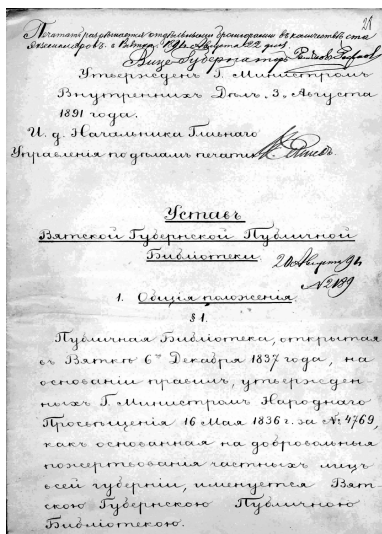 21
Печатать разрѣшается отдѣльными брошюрами въ количествѣ ста
экземпляровъ. г. Вятка, 1891 г. Августа 22 дня.
Вице Губернаторъ
Утвержденъ Г. Министромъ
Внутреннихъ Дѣлъ. 3. Августа
1891 года.
И. д. Начальника Главнаго
Управленія по дѣламъ печати
Уставъ
Вятской Губернской Публичной
Библіотеки.
20 Августа 91
№ 2189
1. Общія положенія.
§ 1.
Публичная Библіотека, открытая
въ Вяткѣ 6го Декабря 1837 года, на
основаніи правилъ, утвержден-
ныхъ Г. Министромъ Народнаго
Просвѣщенія 16 Мая 1836 г. за № 4769,
какъ основанная на добровольныя
пожертвованія частныхъ лицъ
всей губерніи, именуется Вят-
скою Губернскою Публичною
Библіотекою.